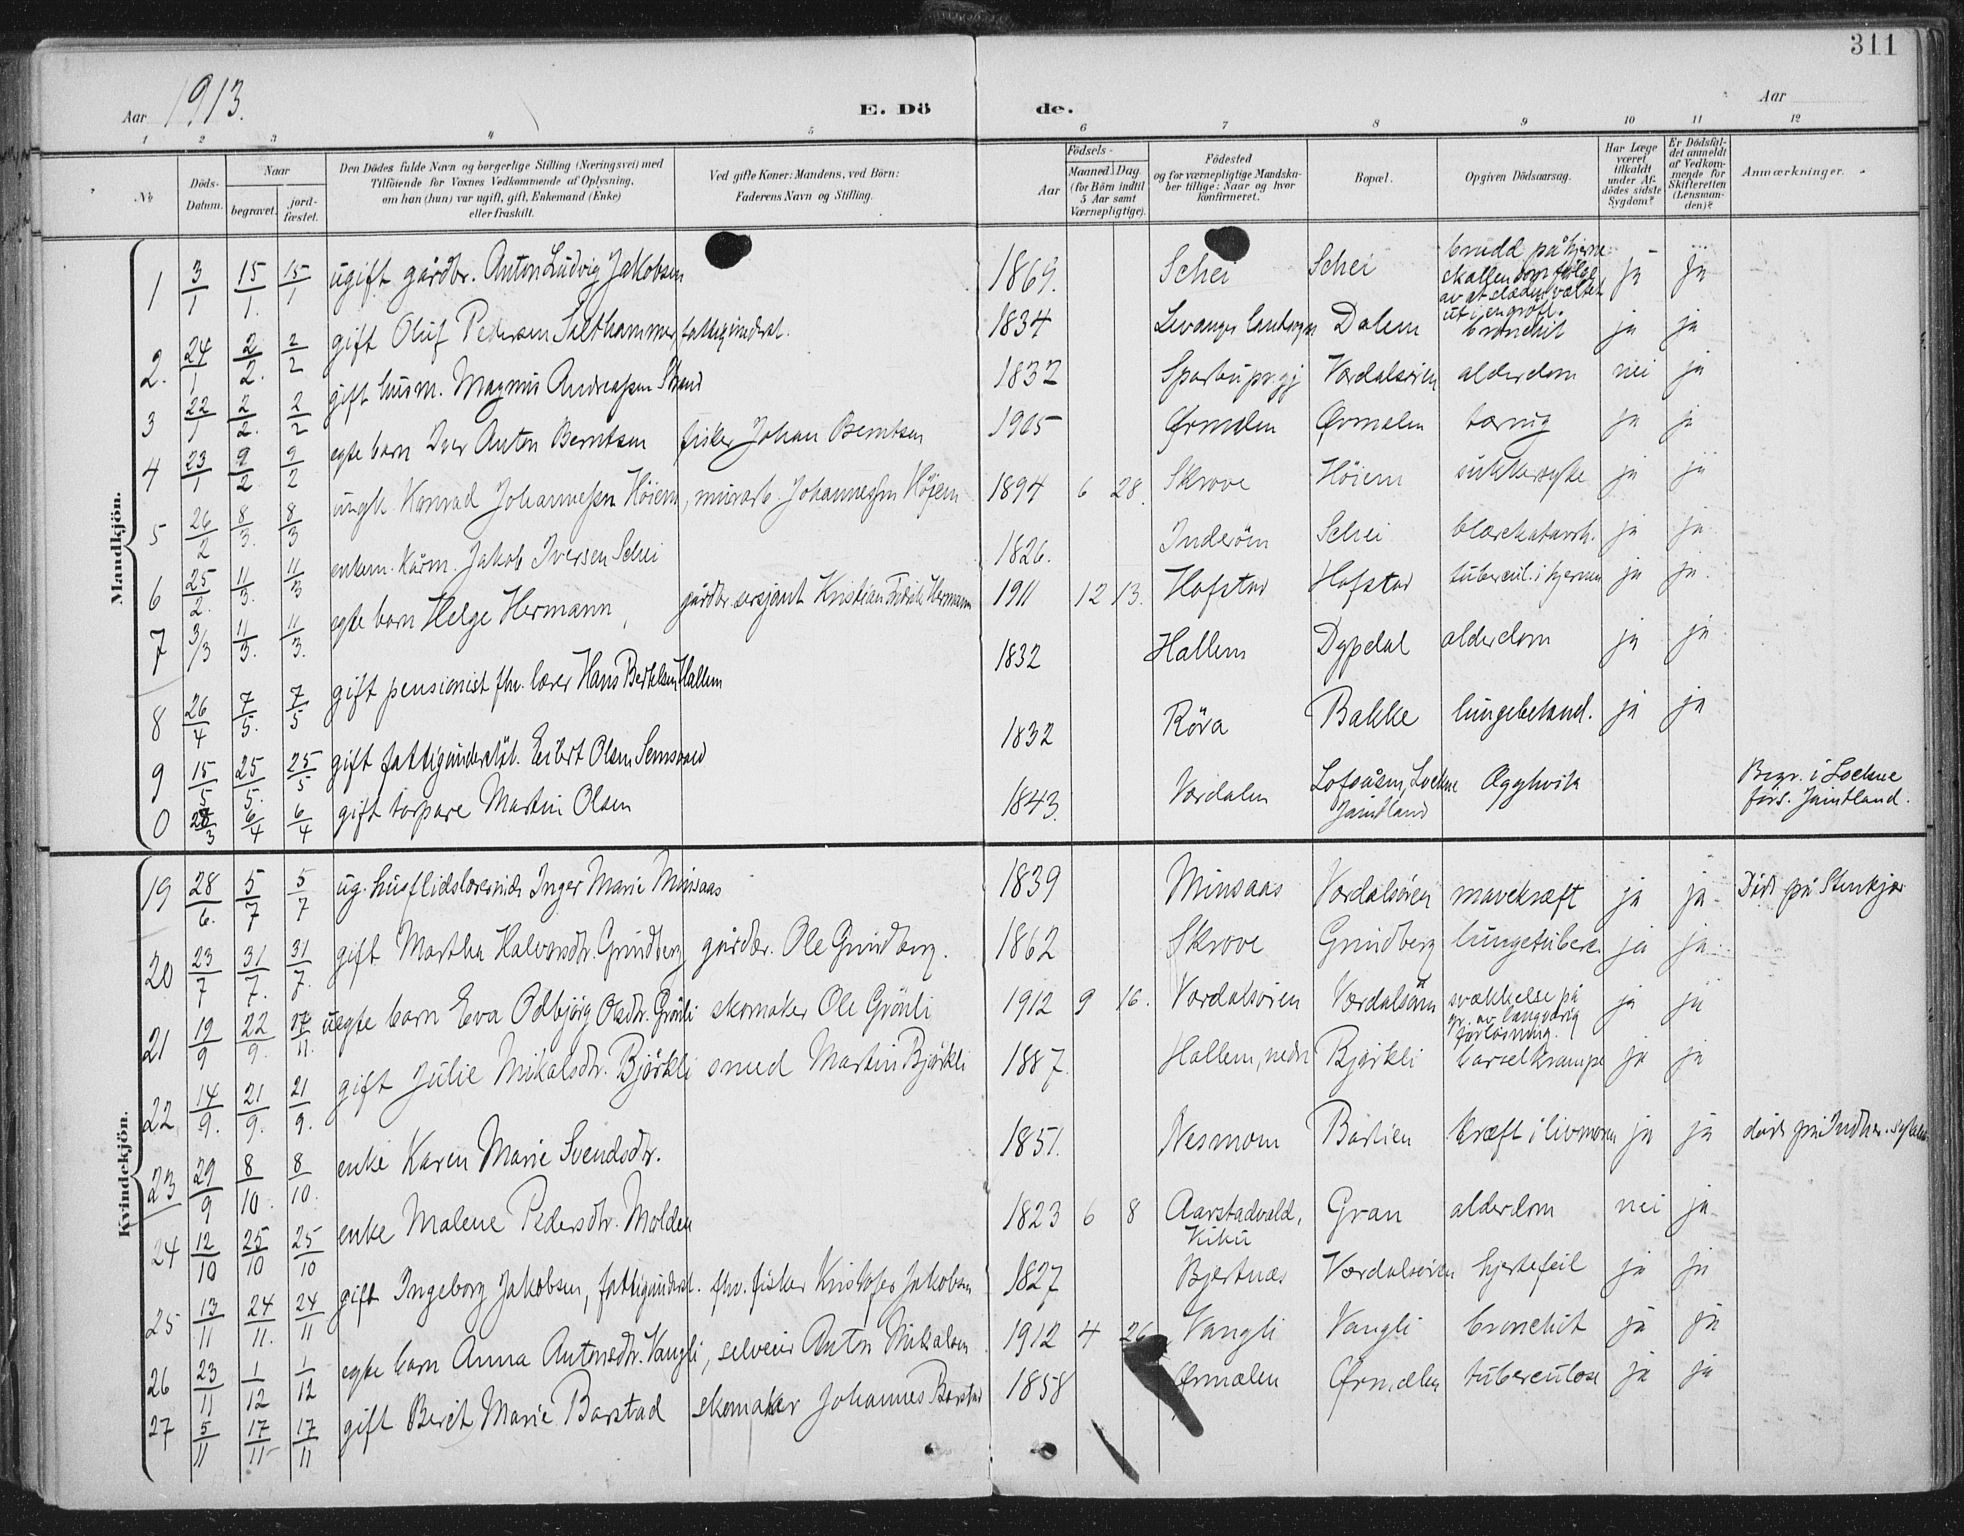 311
Aar 1913.
E. Döde.
Aar
1 2 3 4 5 6 7 8 9 10 11 12
No.
Döds-Datum.
Naar
begravet.
jord-fæstet.
Den Dödes fulde Navn og borgerlige Stilling (Næringsvei) med
Tilföiende for Voxnes Vedkommende af Oplysning,
om han (hun) var ugift, gift, Enkemand (Enke)
eller fraskilt.
Ved gifte Koner: Mandens, ved Börn:
Faderens Navn og Stilling.
Födsels-
Aar
Maaned Dag
(for Börn indtil 5 Aar samt Værnepligtige).
Födested
og for værnepligtige Mandskaber tillige: Naar og hvor konfirmeret.
Bopæl.
Opgiven Dödsaarsag.
Har Læge været tilkaldt under Afdödes sidste Sygdom?
Er Dödsfaldet anmeldt af Vedkommende for Skifteretten (Lensmanden)?
Anmærkninger.
Mandkjön.
1 3/1 15/1. 15/1 ugift gårdbr. Anton Ludvig Jakobsen 1869. Schei Schei brudd på hjerneskallen som følge av at slæden væltet ut i en grøft. ja ja
2. 24/1 2/2. 2/2 gift Oluf Pedersen Salthammer, fattigunderst. 1834 Levanger landsogn Dalem bronchit ja ja
3 22/1 2/2. 2/2 gift husm. Magnus Andreassen Strand 1832 Sparbu prgj Værdalsøren alderdom nei ja
4 23/1 9/2 9/2 egte barn Iver Anton Berntsen fisker Johan Berntsen 1905 Ørmelen Ørmelen tæring ja ja
5 26/2 8/3. 8/3 ungk. Konrad Johannessen Höiem, murarb. Johannessen Höiem 1894 6 28. Skrove Höiem sukkersyke ja ja
6 25/2. 11/3. 11/3 enkem. kårm. Jakob Iversen Schei 1826. Inderöen Schei blærekatarrh. ja ja
7 3/3 11/3. 11/3. egte barn Helge Hermann, gårdbr. sersjant Kristian Fredrik Hermann 1911 12 13. Hofstad Hofstad tubercul. i hjernen ja ja.
8 26/4 7/5. 7/5 gift pensionist fhv. lærer Hans Bertelsen Hallem 1832 Hallem Dypdal alderdom ja ja
9 15/5 25/5. 25/5 gift fattigunderstöt. Eilert Olsen Semsvald 1832 Röra Bakke lungebetænd. ja ja
0 28/3 6/4 6/4 gift torpare Martin Olsen 1843. Værdalen Lofsåsen, Lockne Jämtland Ägghvita Begr. i Lockne förs. Jämtland.
Kvindekjön.
19 28/6. 5/7 5/7 ug. husflidslærerinde Inger Marie Minsaas 1839 Minsaas Værdalsøren mavekræft ja ja Död på Stenkjær
20 23/7 31/7. 31/7. gift Martha Halvorsdtr. Grindberg gårdbr. Ole Grindberg. 1862 Skrove Grindberg lungetuberk. ja ja
21 19/9 22/9. 17/11. uegte barn Eva Odbjörg Olsdtr. Grönli skomaker Ole Grönli 1912 9 16. Værdalsøren Værdalsøren svækkelse på gr. av langvarig forløsning. ja ja
22 14/9. 21/9. 21/9. gift Julie Mikalsdtr. Björkli smed Martin Björkli 1887. Hallem, nedre Björkli barselkrampe ja ja
23 29/9 8/10. 8/10. enke Karen Marie Svendsdtr. 1851. Nesmoen Bastien kræft i livmoren ja ja död på Indher. sykehus
24 12/10 25/10 25/10 enke Malene Pedersdtr. Molden 1823 6 8 Aarstadvald, Gran alderdom nei ja
25 13/11 24/11. 24/11 gift Ingeborg Jakobsen, fattigunderst. fhv. fisker Kristofer Jakobsen 1827 Bjertnæs Værdalsøren hjertefeil ja ja
26 23/11 1/12 1/12 egte barn Anna Antonsdtr. Vangli, selveier Anton Mikalsen 1912 4 26 Vangli Vangli bronchit ja ja
27 5/11 17/11 17/11 gift Berit Marie Barstad skomaker Johannes Barstad 1858 Ørmelen Ørmelen tuberculose ja ja